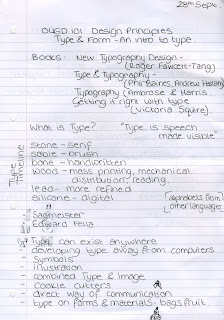 28th Sept.
OUGD101 Design Principles
Type & Form - An intro to type
Books: New Typography Design -
(Roger Fawcett-Tang)
Type & Typography -
(Phil Baines, Andrew Haslam)
Typography (Ambrose & Harris)
Getting it right with type
(Victoria Squire).
What is Type? "Type is speech
made visible"
Type Timeline
stone - serif
sable - brush
bone - handwritten
wood - mass printing, mechanical
distribution, reading.
lead - more refined
silicone - digital
(alphabets from
other languages)
- Sagmeister
- Edward Fella
- Type can exist anywhere
- developing type away from computers
- Symbols
- illustration
- combined Type & Image
- Cookie cutters
- direct way of communication
- type on forms & materials - bags, fruit